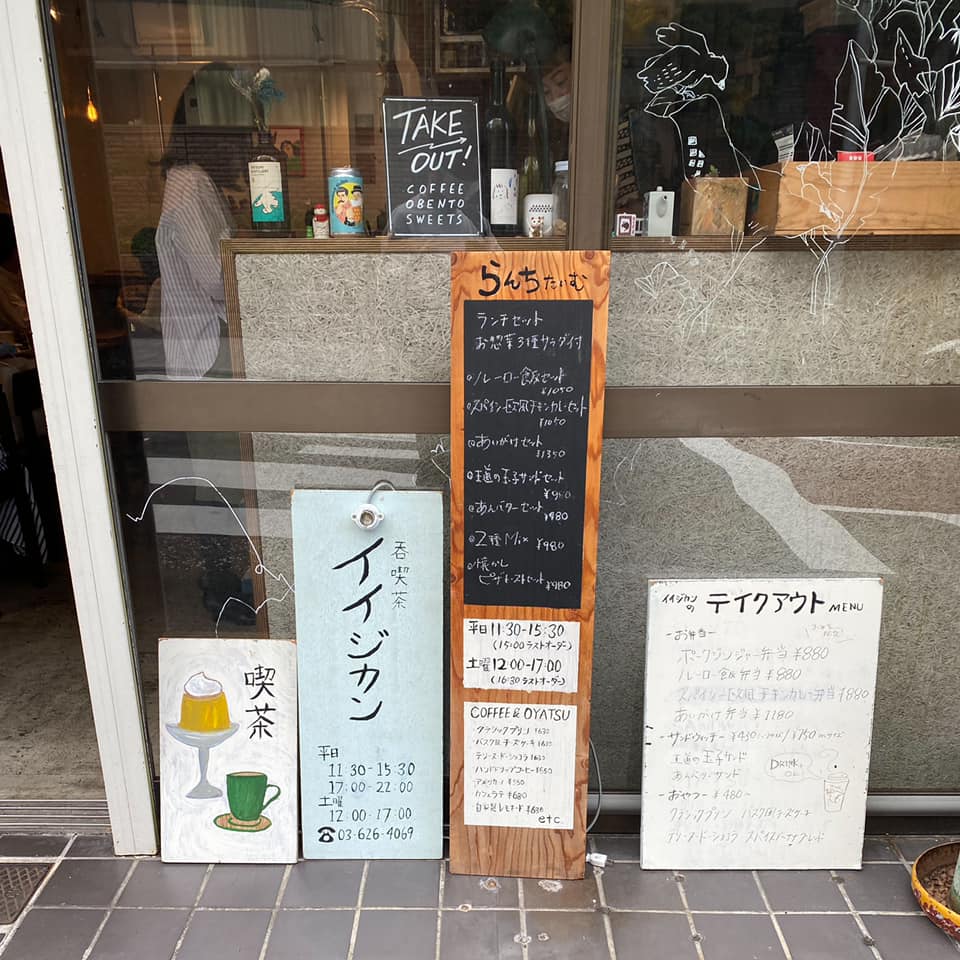 TAKE
OUT!
COFFEE
OBENTO
SWEETS
喫茶
呑喫茶
イイジカン
平日
11:30-15:30
17:00-22:00
土曜
12:00-17:00
☎03-626-4069
らんちたいむ
ランチセット
お惣菜3種サラダ付
ルーロー飯セット
¥1050
スパイシー欧風チキンカレーセット
¥1050
あいがけセット
¥1350
王道の玉子サンドセット
あんバターセット
¥980
2種Mix ¥980
ピザトーストセット ¥980
平日 11:30-15:30
(15:00ラストオーダー)
土曜 12:00-17:00
(16:30ラストオーダー)
COFFEE & OYATSU
クラシックプリン
バスク風チーズケーキ
テリーヌ・ド・ショコラ
ハンドドリップコーヒー ¥550
アメリカーノ ¥550
カフェラテ ¥680
自家製レモネード
etc
イイジカンの テイクアウト MENU
-お弁当-
ポークジンジャー弁当 ¥880
ルーロー飯弁当 ¥880
スパイシー欧風チキンカレー弁当 ¥880
あいがけ弁当 ¥1180
-サンドウィッチ-
王道の玉子サンド
あんバターサンド
DRINK
-おやつ- ¥480~
クラシックプリン バスク風チーズケーキ
テリーヌ・ド・ショコラ